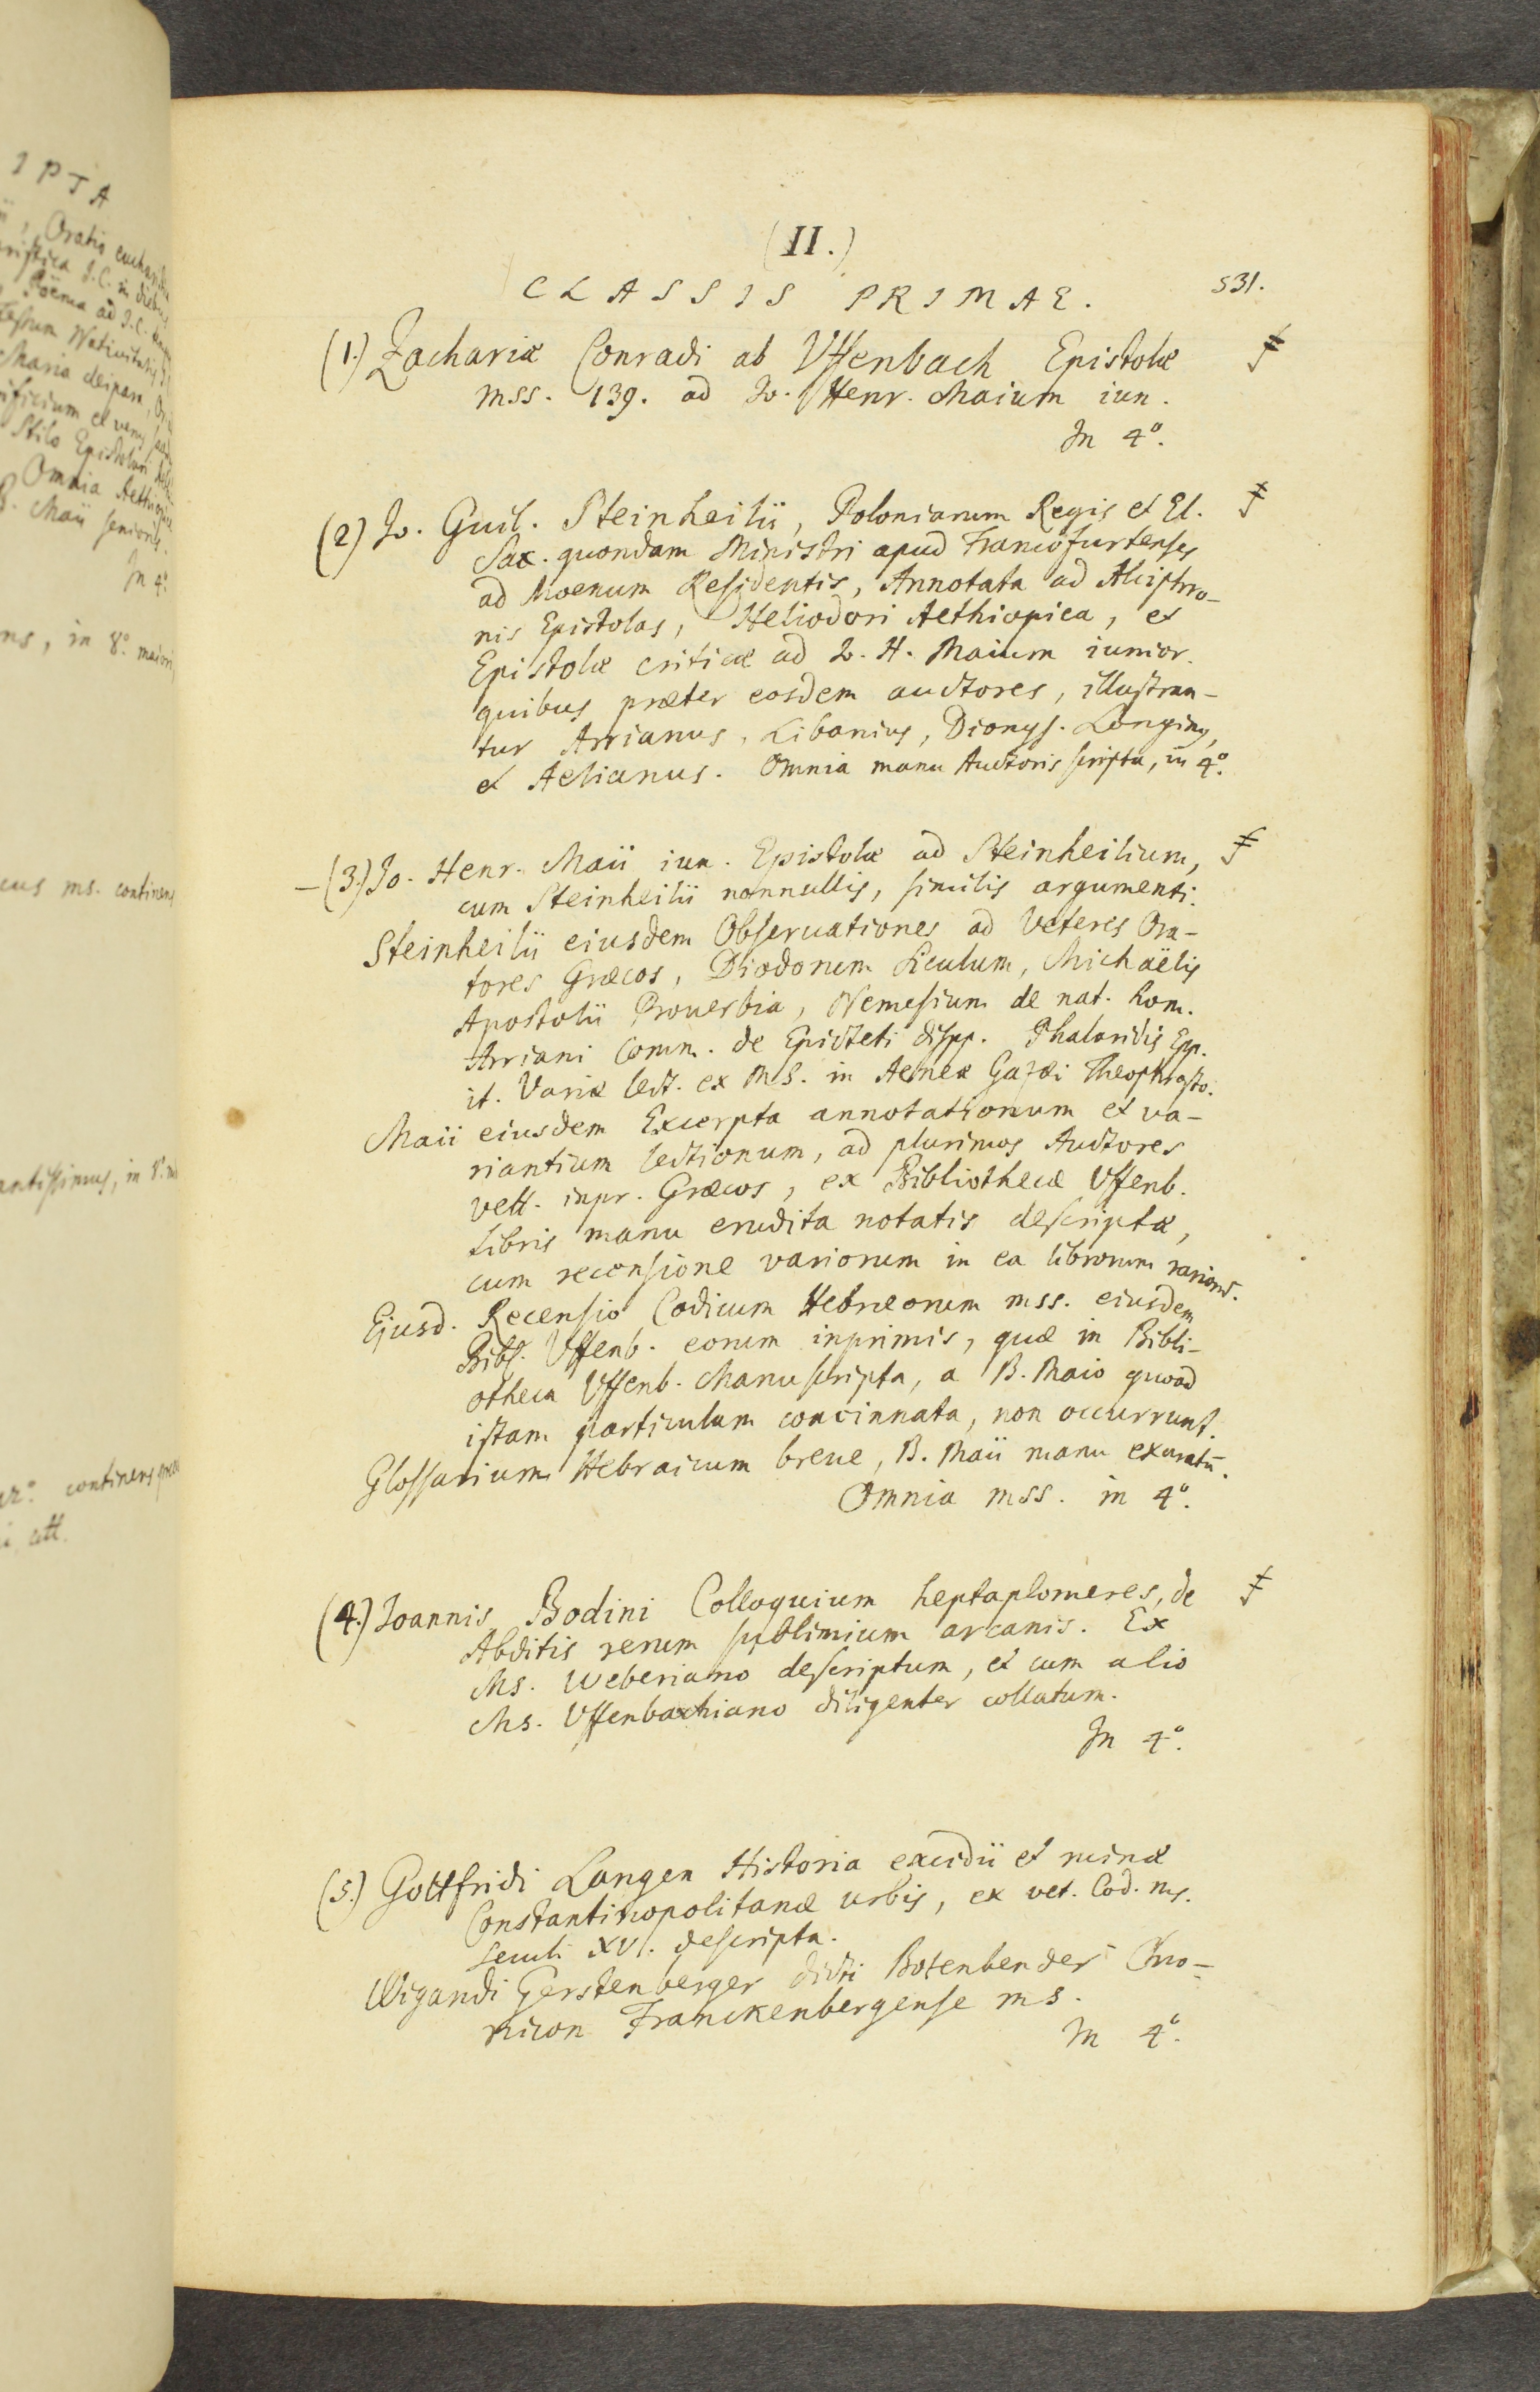 IPTA
Oratio
J.C. in
Poema ad J.C.
Nativitatis
Maria deipara,
et
Stilo
Omnia
B. Maii senioris.
In 4°
in 8° maiori
ms. continens
in 8°
continens
(II.)
CLASSIS PRIMAE.
531.
(1.) Zachariæ Conradi ab Uffenbach Epistolæ
mss. 139. ad Jo. Henr. Maium iun.
In 4°.
(2) Jo. Guil. Steinheilii, Poloniarum Regis et El.
Sax. quondam Ministri apud Francofurtenses
ad Moenum Residentis, Annotata ad Alciphro-
nis Epistolas, Heliodori Aethiopica, et
Epistolæ criticæ ad J. H. Maium iunior.
quibus præter eosdem auctores, illustran-
tur Arrianus, Libanius, Dionys. Longinus,
et Aelianus. Omnia manu Auctoris scripta, in 4°.
– (3.) Jo. Henr. Maii iun. Epistolæ ad Steinheilium,
cum Steinheilii nonnullis, similis argumenti.
Steinheilii eiusdem Observationes ad Veteres Ora-
tores Græcos, Diodorum Siculum, Michaëlis
Apostolii Proverbia, Nemesium de nat. hom.
Arriani Comm. de Epicteti dispp. Phalaridis Epp.
it. Variæ lect. ex MS. in Aeneæ Gazæi Theophrasto.
Maii eiusdem Excerpta annotationum et va-
riantium lectionum, ad plurimos Auctores
vett. inpr. Græcos, ex Bibliothecæ Uffenb.
libris manu erudita notatis descriptæ,
cum recensione variorum in ea librorum rarior.
Ejusd. Recensio Codicum Hebræorum mss. eiusdem
Bibl. Uffenb. eorum inprimis, quæ in Bibli-
otheca Uffenb. Manuscripta, a B. Maio quoad
istam particulam concinnata, non occurrunt.
Glossarium Hebraicum breue, B. Maii manu exaratū.
Omnia mss. in 4°.
(4.) Joannis Bodini Colloquium heptaplomeres, de
Abditis rerum sublimium arcanis. Ex
Ms. Weberiano descriptum, et cum alio
Ms. Uffenbachiano diligenter collatum.
In 4°.
(5.) Gottfridi Langen Historia excidii et ruinæ
Constantinopolitanæ urbis, ex vet. Cod. ms.
seculi XV. descripta.
Wigandi Gerstenberger dicti Botenbender Chro-
nicon Franckenbergense ms.
In 4°.